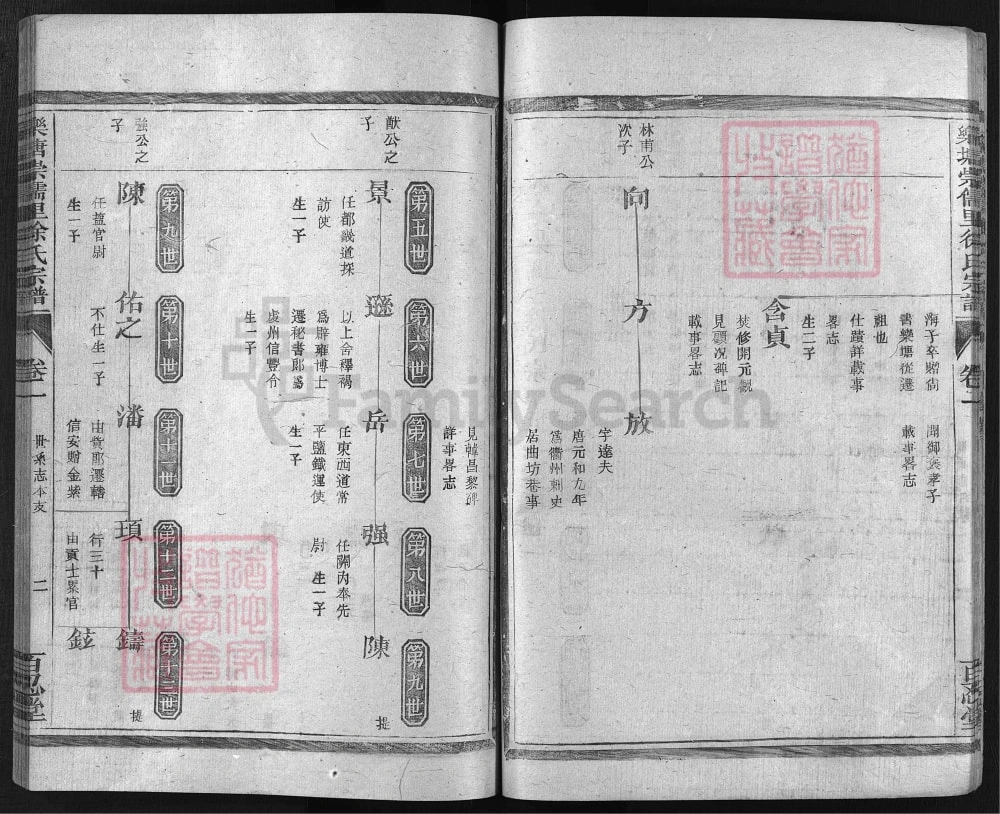 海子卒贈尚
書樂壜從遷
祖也
仕蹟詳載事
畧志
生二子
開御𧜟孝子
載事畧志
含貞
焚修開元觀
見顧况碑記
載事畧志
林甫公
次子
向
方
放
字達夫
唐元和九年
爲衢州刺史
居曲坊巷事
見韓昌黎碑
詳事畧志
第五世
第六世
第七世
第八世
第九世
猷公之
子
景
任都畿道採
訪使
生一子
遜
以上舍釋褐
爲辟雍博士
遷秘書郎爲
處州信豐令
生一子
岳
任東西道常
平鹽鐵運使
生一子
强
任關內奉先
尉
生一子
陳
提
第九世
第十世
第十一世
第十二世
第十三世
強公之
子
陳
任鹽官尉
生一子
佑之
不仕生一子
潘
由貲郎遷轄
信安贈金紫
頊
行三十
由貢士累官
鑄
鉉
提
徐氏宗譜
卷一
世系志本支
二
百忍堂
FamilySearch